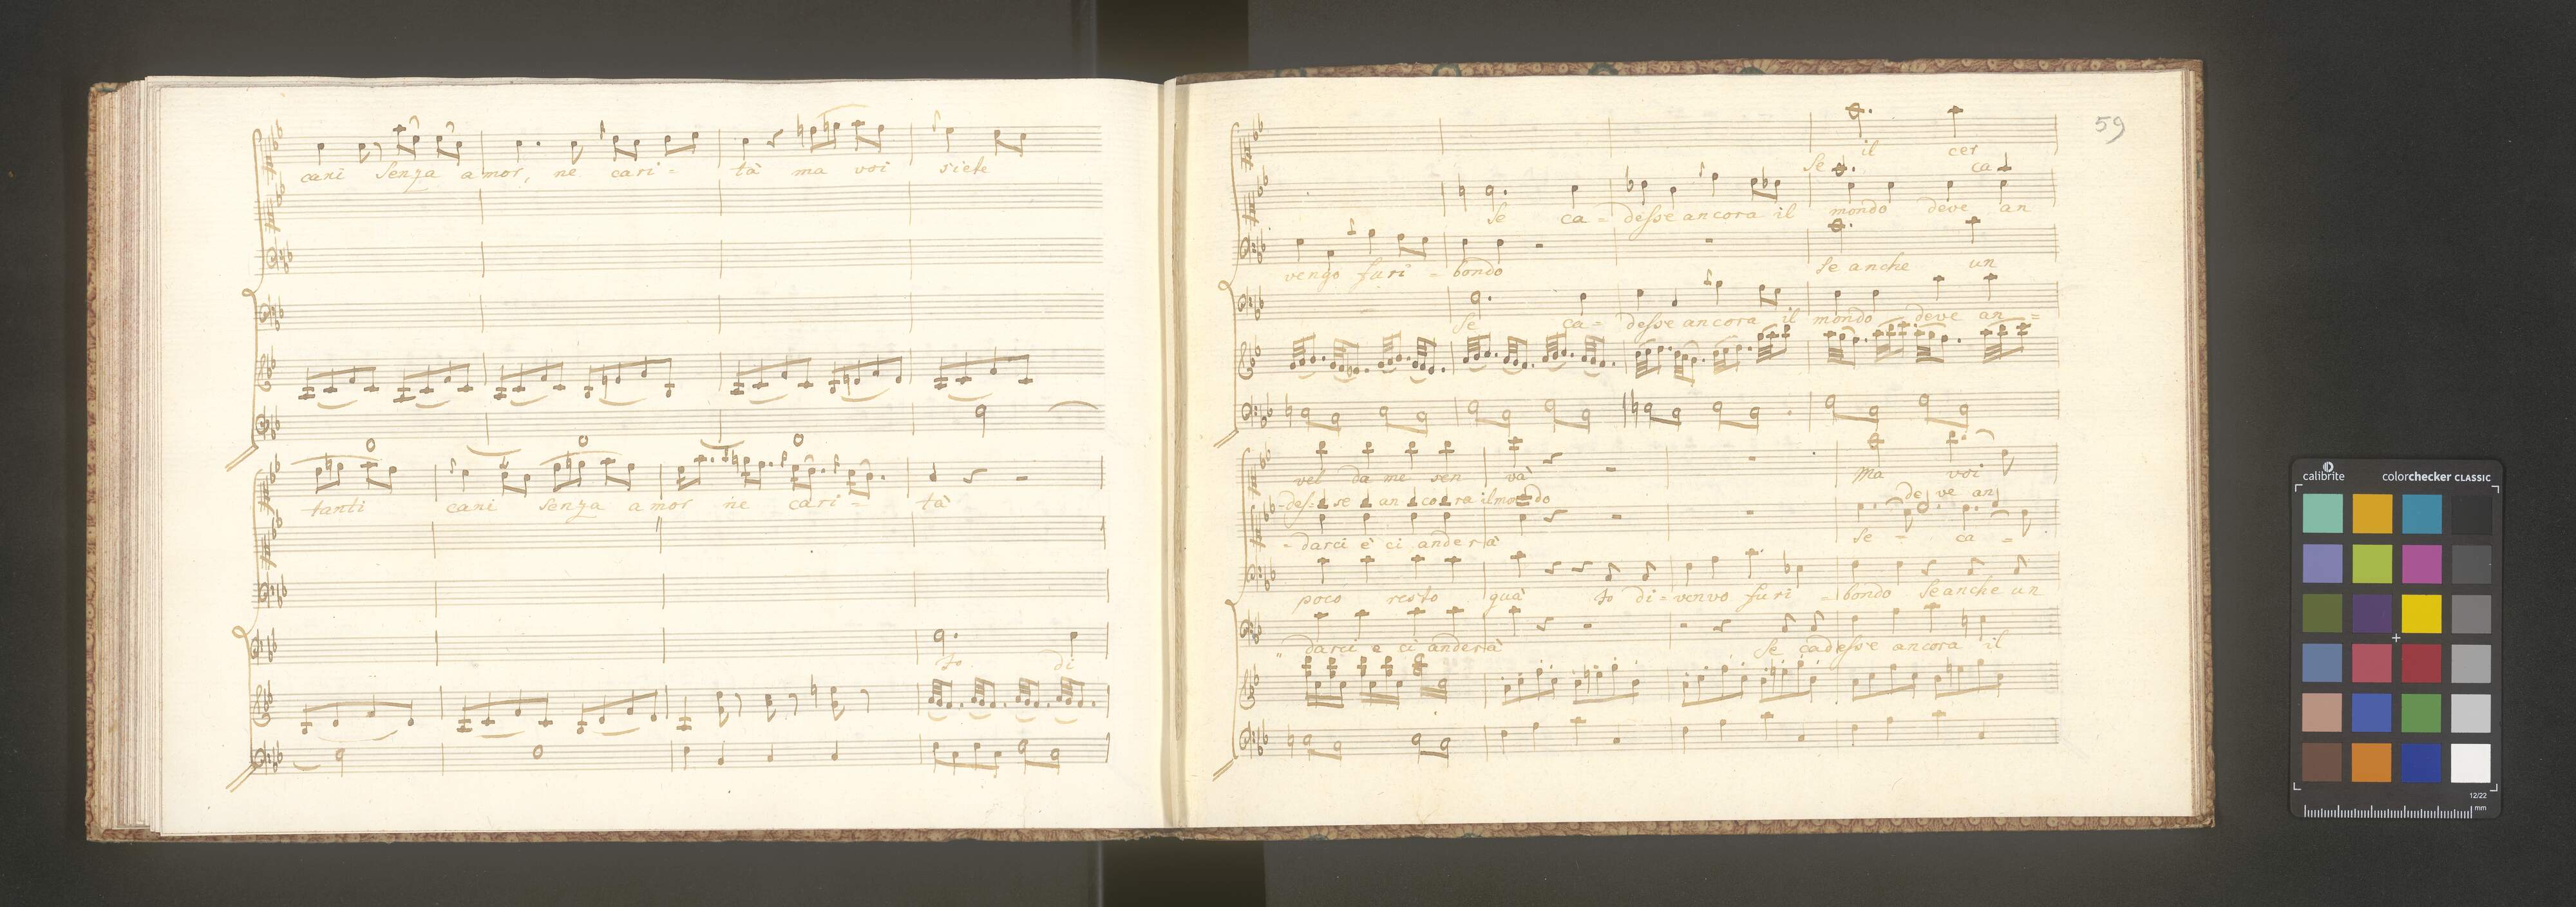 cani senza amor, ne cari = tà ma voi siete
tanti cani senza amor ne cari = tà
Io di
59
il cer
Se ca
Se ca = desse ancora il mondo deve an
vengo furi = bondo Se anche un
Se ca = desse ancora il mondo deve an =
vel da me sen và Ma voi
-des- se an co ra il mon do de ve an
- darci è ci anderà se - ca =
poco resto quà Io di = venvo furi = bondo Se anche un
" darci e ci anderà Se cadesse ancora il
calibrite colorchecker CLASSIC
12/22
mm